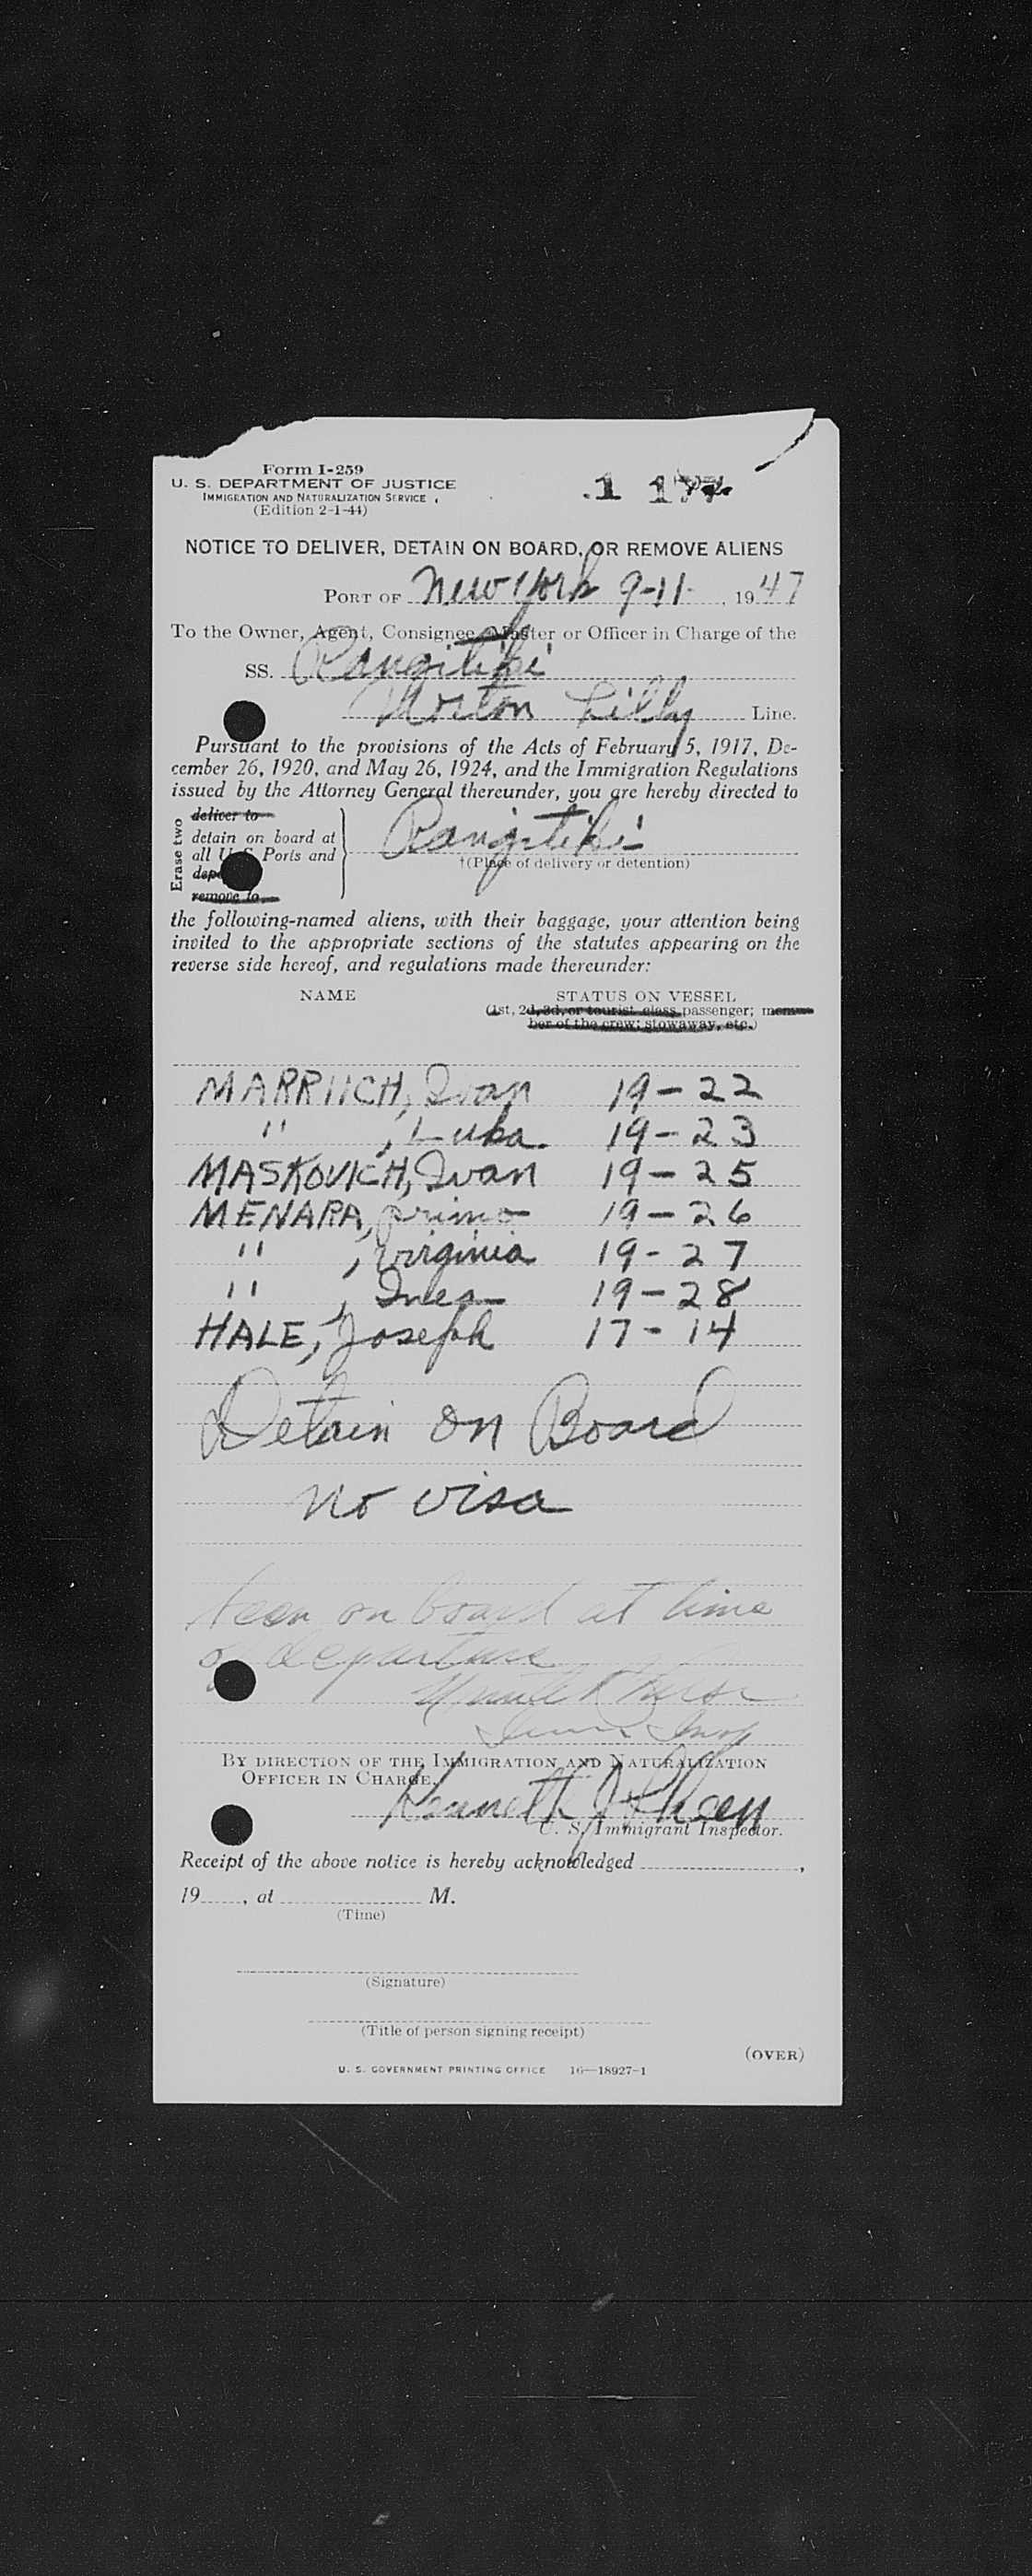 Form I-259
U. S. DEPARTMENT OF JUSTICE
IMMIGRATION AND NATURALIZATION SERVICE
(Edition 2-1-44)
NOTICE TO DELIVER, DETAIN ON BOARD, OR REMOVE ALIENS
PORT OF New York 9-11-, 1947
To the Owner, Agent, Consignee, Master or Officer in Charge of the
SS. Rangitiki
Norton Lilly Line.
Pursuant to the provisions of the Acts of February 5, 1917, De-
cember 26, 1920, and May 26, 1924, and the Immigration Regulations
issued by the Attorney General thereunder, you are hereby directed to
Erase two
deliver to
detain on board at
all U. S. Ports and
remove to
Rangitiki
†(Place of delivery or detention)
the following-named aliens, with their baggage, your attention being
invited to the appropriate sections of the statutes appearing on the
reverse side hereof, and regulations made thereunder:
NAME STATUS ON VESSEL
(1st, 2d, 3d, or tourist class passenger; mem-
ber of the crew; stowaway, etc.)
MARRIICH, Ivan 19-22
" , Luba. 19-23
MASKOVICH, Ivan 19-25
MENARA, primo 19-26
" , Virginia 19-27
" , Ines 19-28
HALE, Joseph 17-14
Detain on Board
no visa
Seen on board at time
of departure
BY DIRECTION OF THE IMMIGRATION AND NATURALIZATION
OFFICER IN CHARGE.
Kenneth
U. S. Immigrant Inspector.
Receipt of the above notice is hereby acknowledged ,
19 , at M.
(Time)
(Signature)
(Title of person signing receipt)
(OVER)
U. S. GOVERNMENT PRINTING OFFICE 16—18927-1